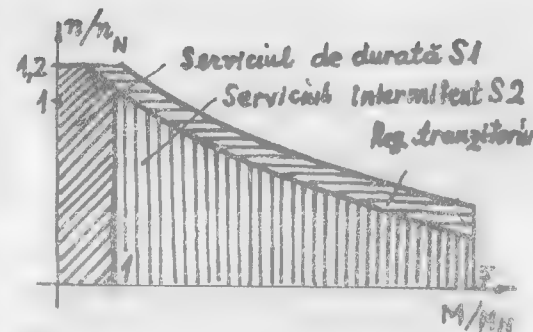 n/n_N
1,2
Serviciul de durată S1
1
Serviciul intermitent S2
Reg. tranzitoriu
1
5
M/M_N